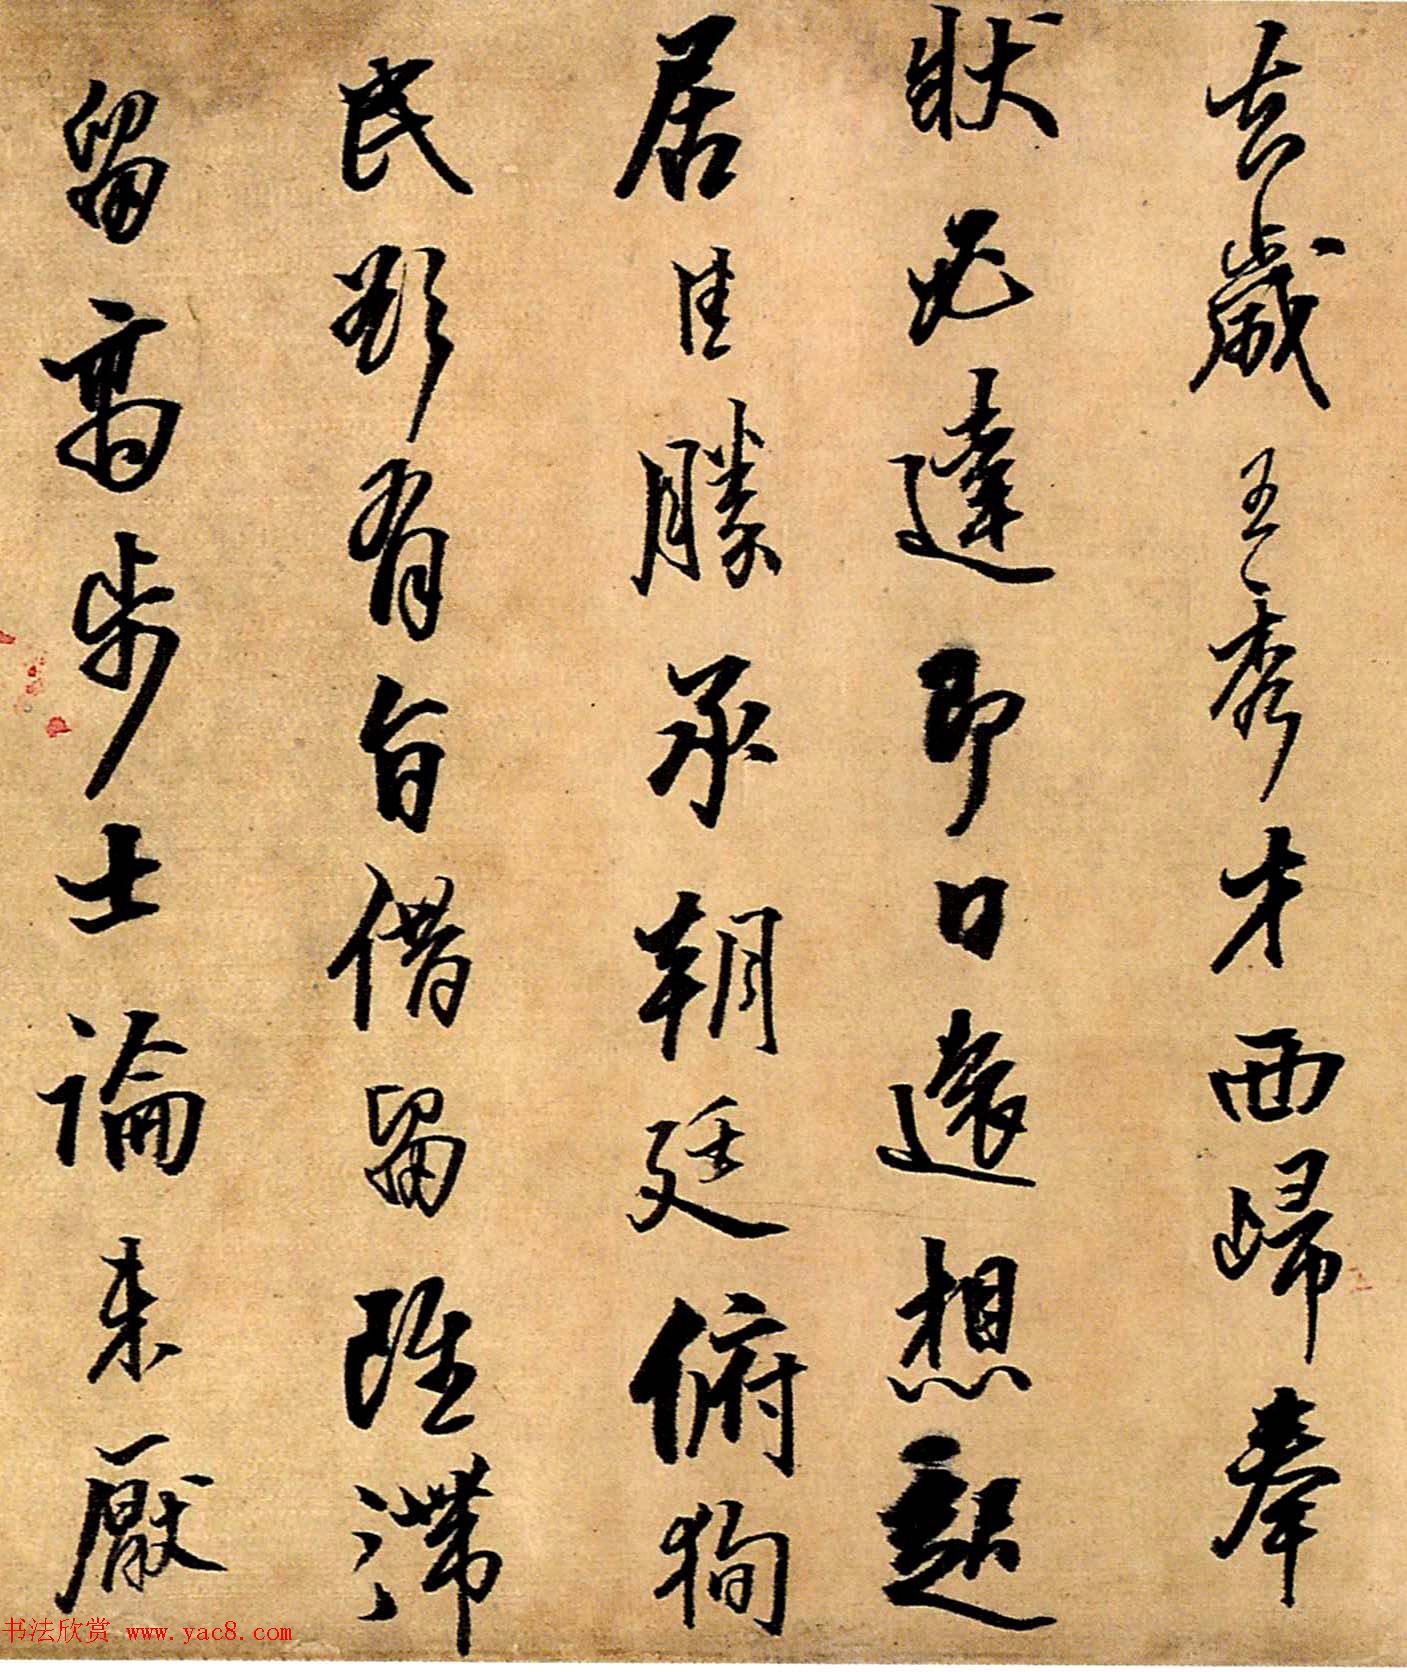 去歲王秀才西歸奉
狀必達即日遠想起
居佳勝承朝廷俯徇
民欲有旨借留雖滯
留高步士論未厭
书法欣赏 www.yac8.com